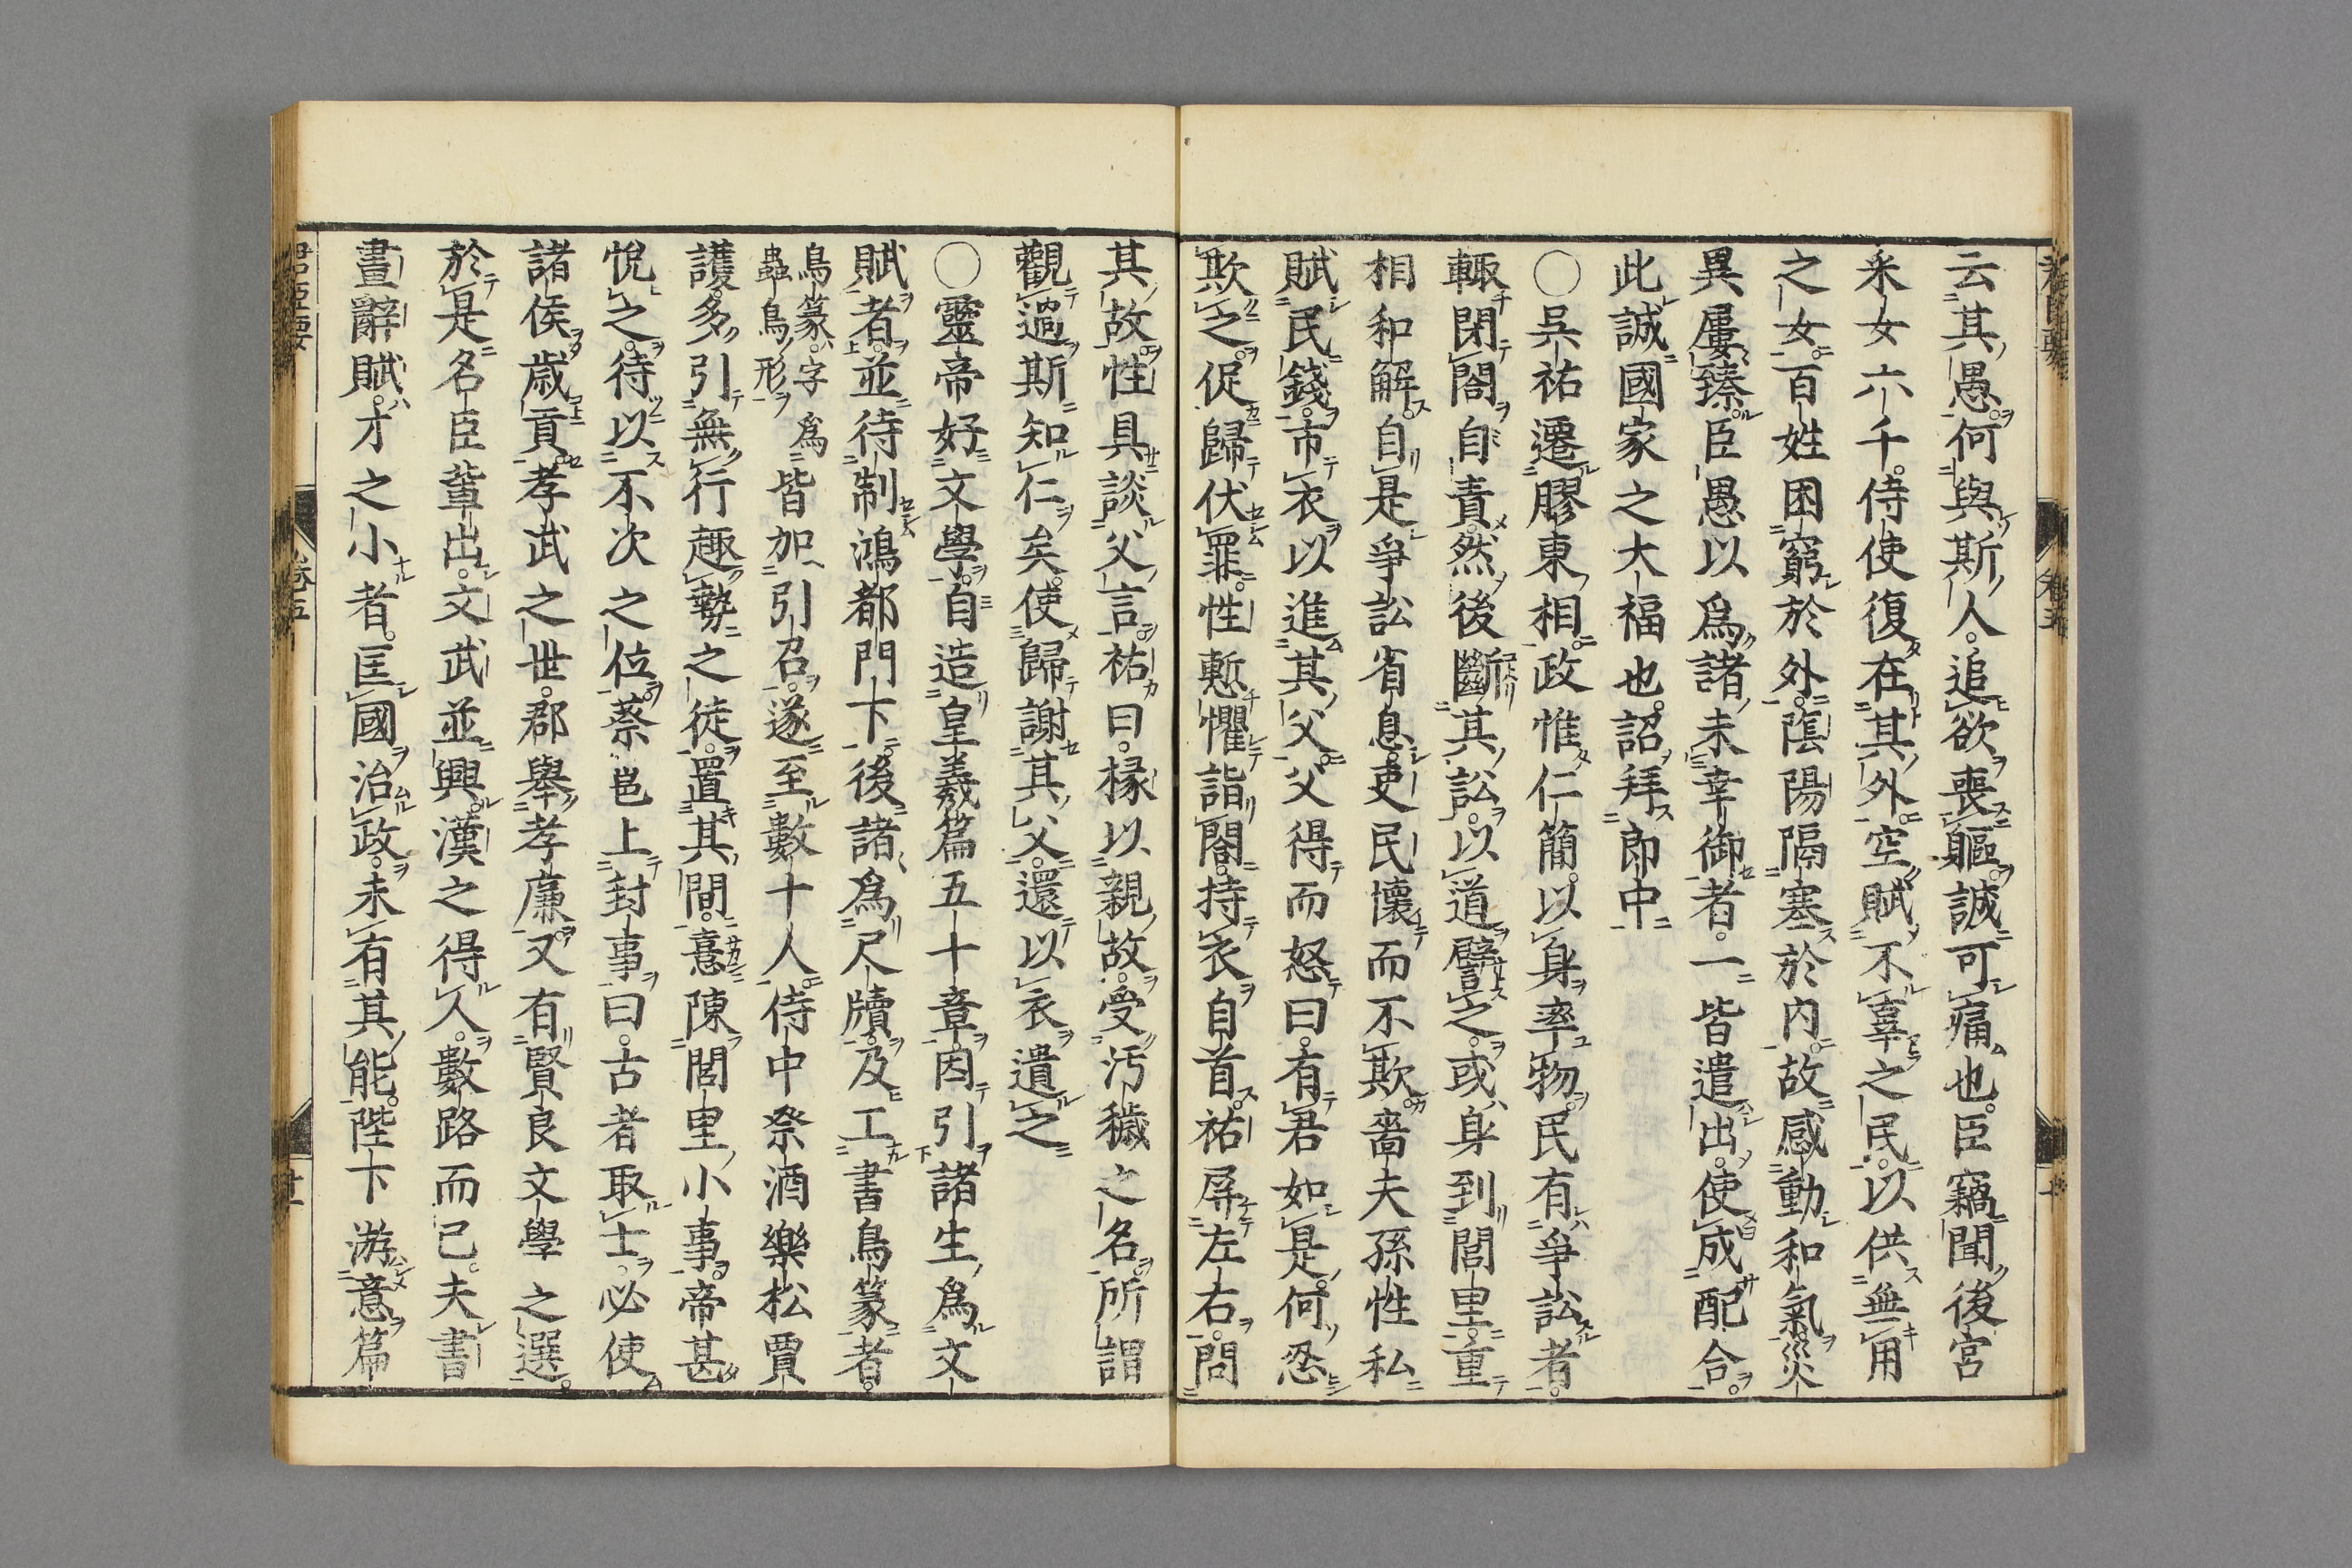 云其愚何與斯人。追欲喪軀。誠可痛也。臣竊聞後宮
釆女六千。侍使復在其外。空賦不辜之民。以供無用
之女。百姓困窮於外。陰陽隔塞於內。故感動和氣。災
異屢臻。臣愚以爲諸未幸御者。一皆遣出。使成配合。
此誠國家之大福也。詔拜郎中
○吳祐遷膠東相。政惟仁簡。以身率物。民有爭訟者。
輙閉閤自責。然後斷其訟。以道譬之。或身到閭里。重
相和解。自是爭訟省息。吏民懷而不欺。嗇夫孫性私
賦民錢。市衣以進其父。父得而怒曰。有君如是。何忍
欺之。促歸伏罪。性慙懼詣閤。持衣自首。祐屏左右。問
其故。性具談父言。祐曰。掾以親故。受汚穢之名。所謂
觀過斯知仁矣。使歸謝其父。還以衣遺之
○靈帝好文學。自造皇羲篇五十章。因引諸生爲文
賦者。並待制鴻都門下。後諸爲尺牘。及工書鳥篆者。
鳥篆。字爲
蟲鳥形
皆加引召。遂至數十人。侍中祭酒樂松賈
護。多引無行趣勢之徒。置其間。憙陳閭里小事。帝甚
悅之。待以不次之位。蔡邕上封事曰。古者取士。必使
諸侯歲貢。孝武之世。郡舉孝廉。又有賢良文學之選。
於是名臣輩出。文武並興。漢之得人。數路而已。夫書
畫辭賦。才之小者。匡國治政。未有其能。陛下游意篇
卷五
卷五